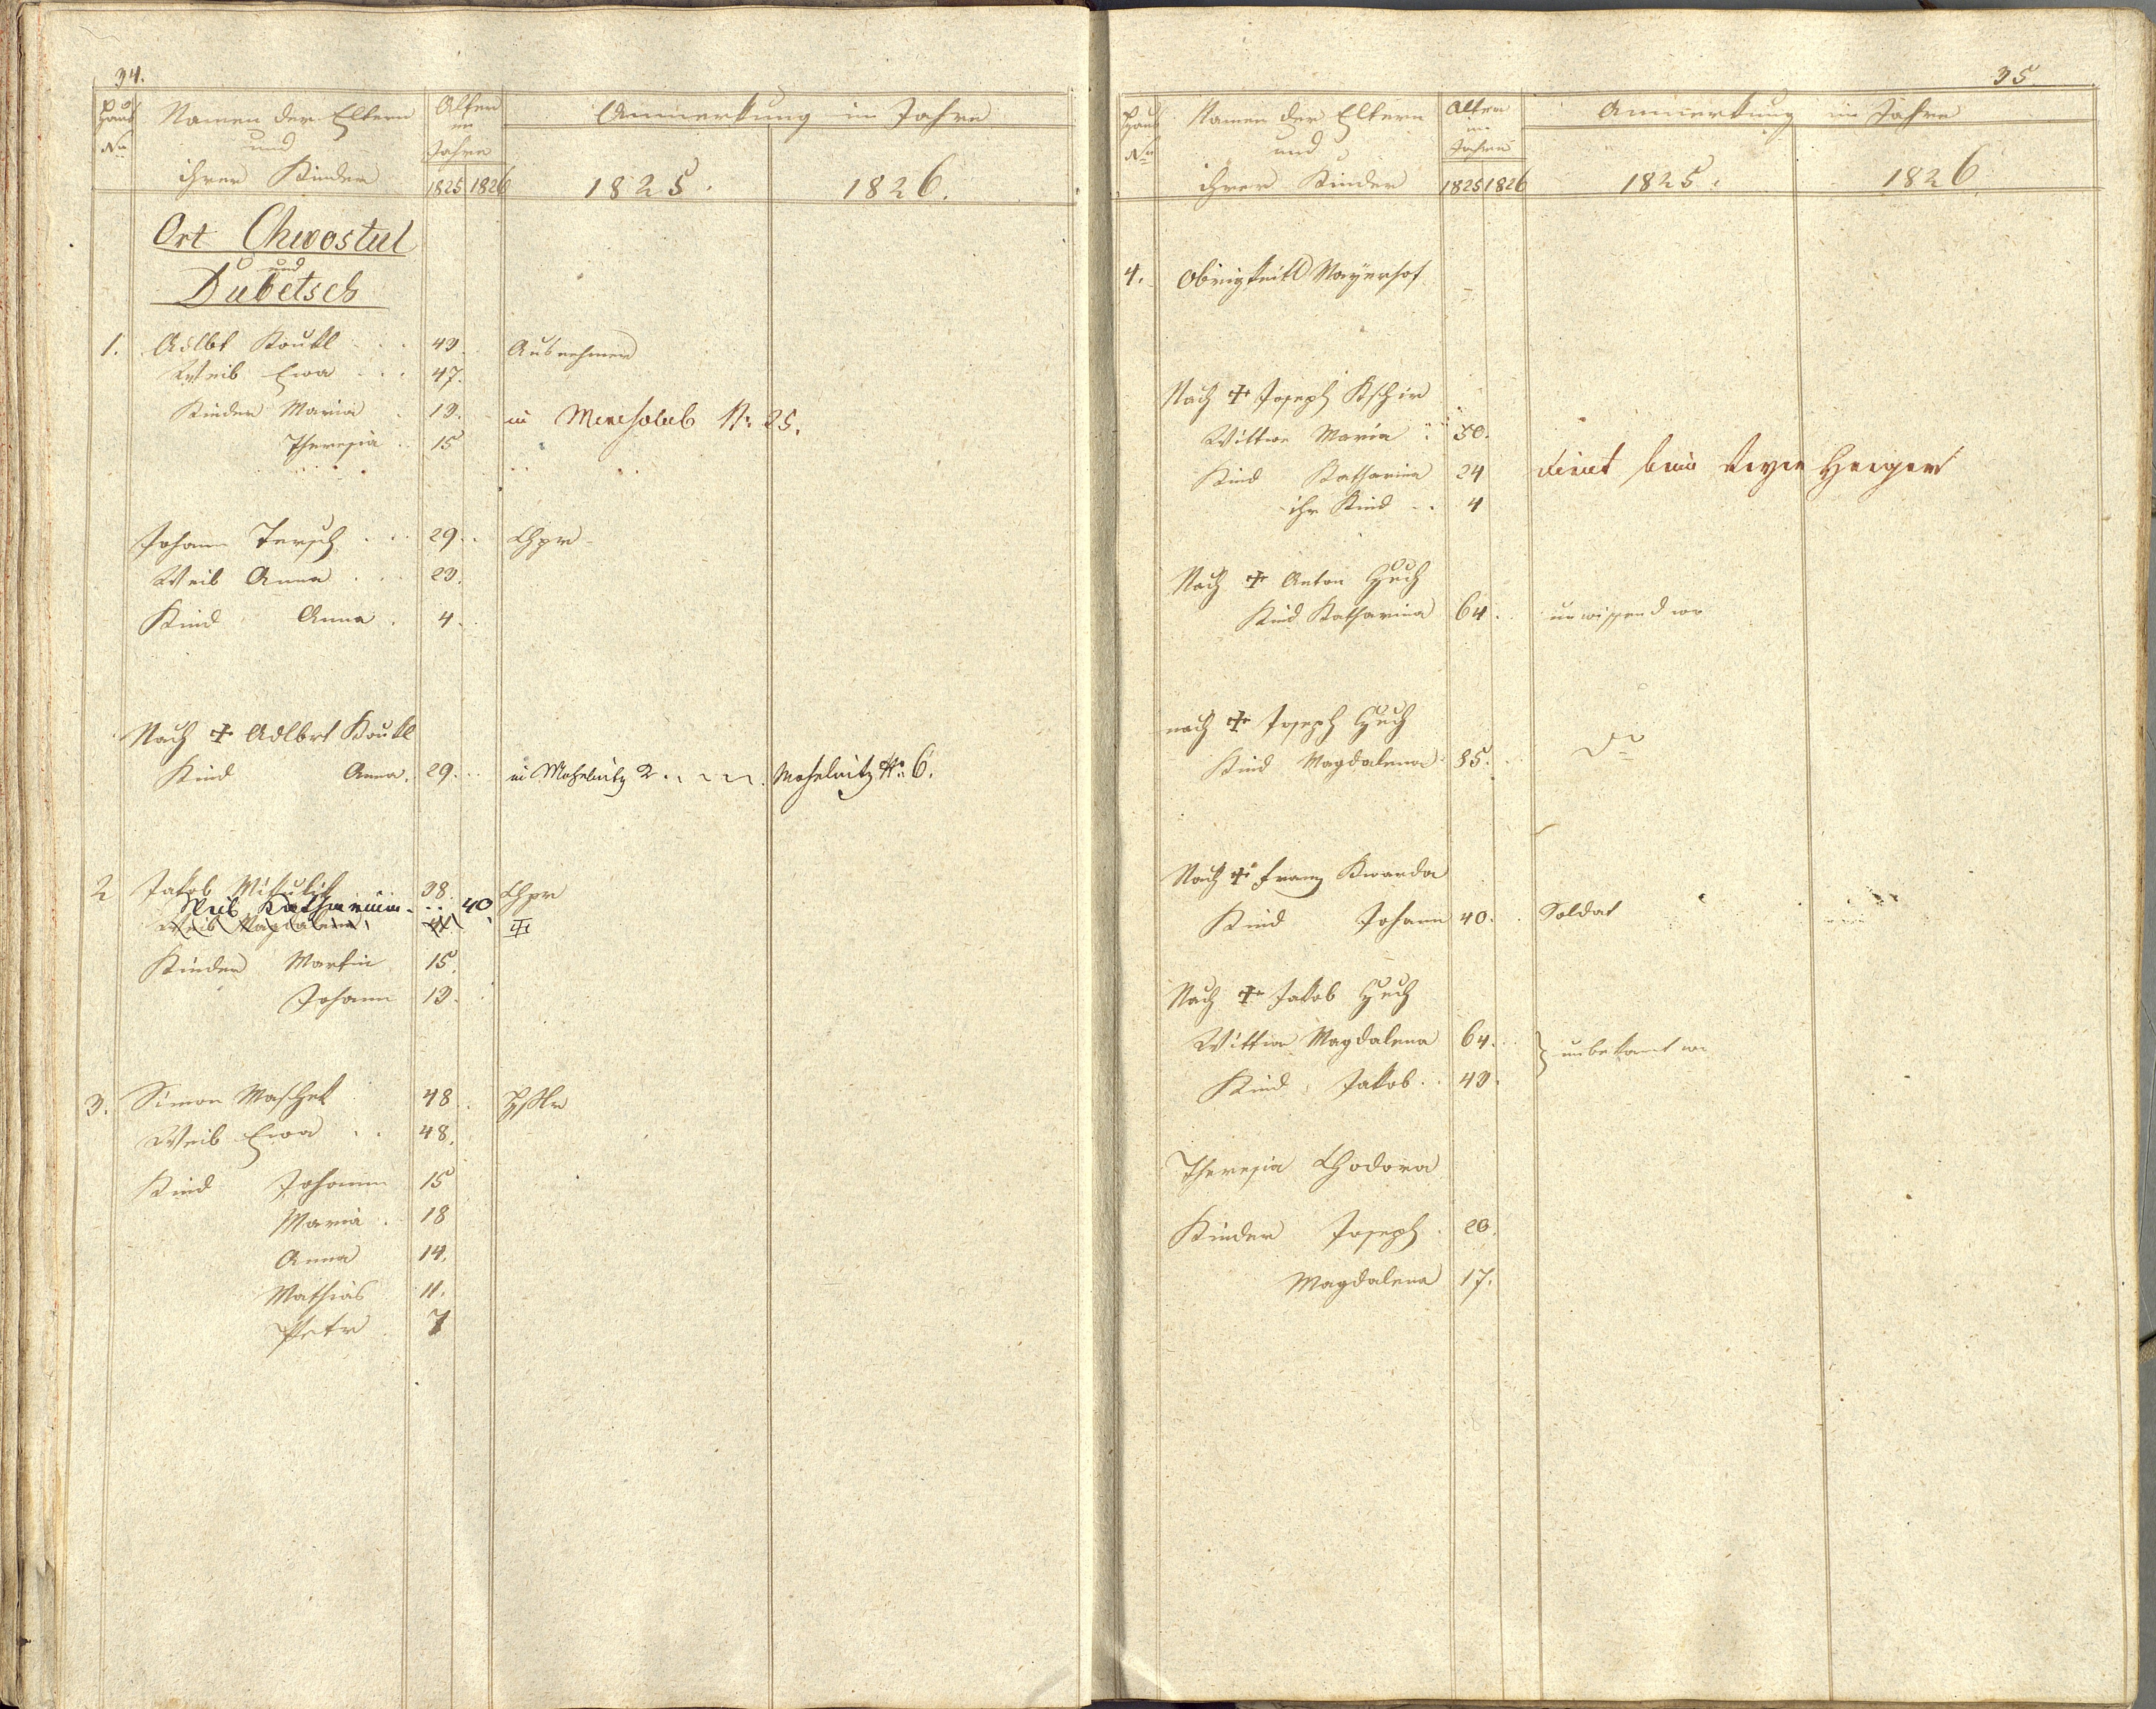 34.
Haus No
Namen der Eltern
und
ihrer Kinder
Alter
im
Jahre
1825 1826
Anmerkung im Jahre
1825.
1826.
Ort Chwostul
und
Dubetsch
1. Adlbt Koukl 43. Ausnehmer
Weib Ewa 47.
Kinder Maria 13. in No 25.
Theresia 15
Johann Tersch 29 Chpr
Weib Anna 23.
Kind Anna 4.
Nach + Adlbrt Koukl
Kind Anna. 29. in Mohelnitz 2 Mohelnitz No 6.
2 Jakob Mikulik 38. Chpr
Weib Katharina 40
Weib Magdalena
Kinder Martin 15.
Johann 13.
3. Simon Maschek 48
Weib Ewa 48.
Kind Johann 15
Maria 18
Anna 14.
Mathias 11.
Petr 7
35
Haus No
Namen der Eltern
und
ihrer Kinder
Alter
im
Jahre
1825 1826
Anmerkung im Jahre
1825.
1826.
4. Obrigkeitl Mayerhof
Nach + Joseph Kschir
Wittwe Maria 50.
Kind Katharina 24 dient beim Heger
ihr Kind 4
Nach + Anton
Kind Katharina 64. unwissend wo
nach + Joseph
Kind Magdalena 35. Do
Nach + Franz Kwarda
Kind Johann 40. Soldat
Nach + Jakob
Wittwe Magdalena 64. unbekannt wo
Kind Jakob 43.
Theresia Chodora
Kinder Joseph 20.
Magdalena 17.